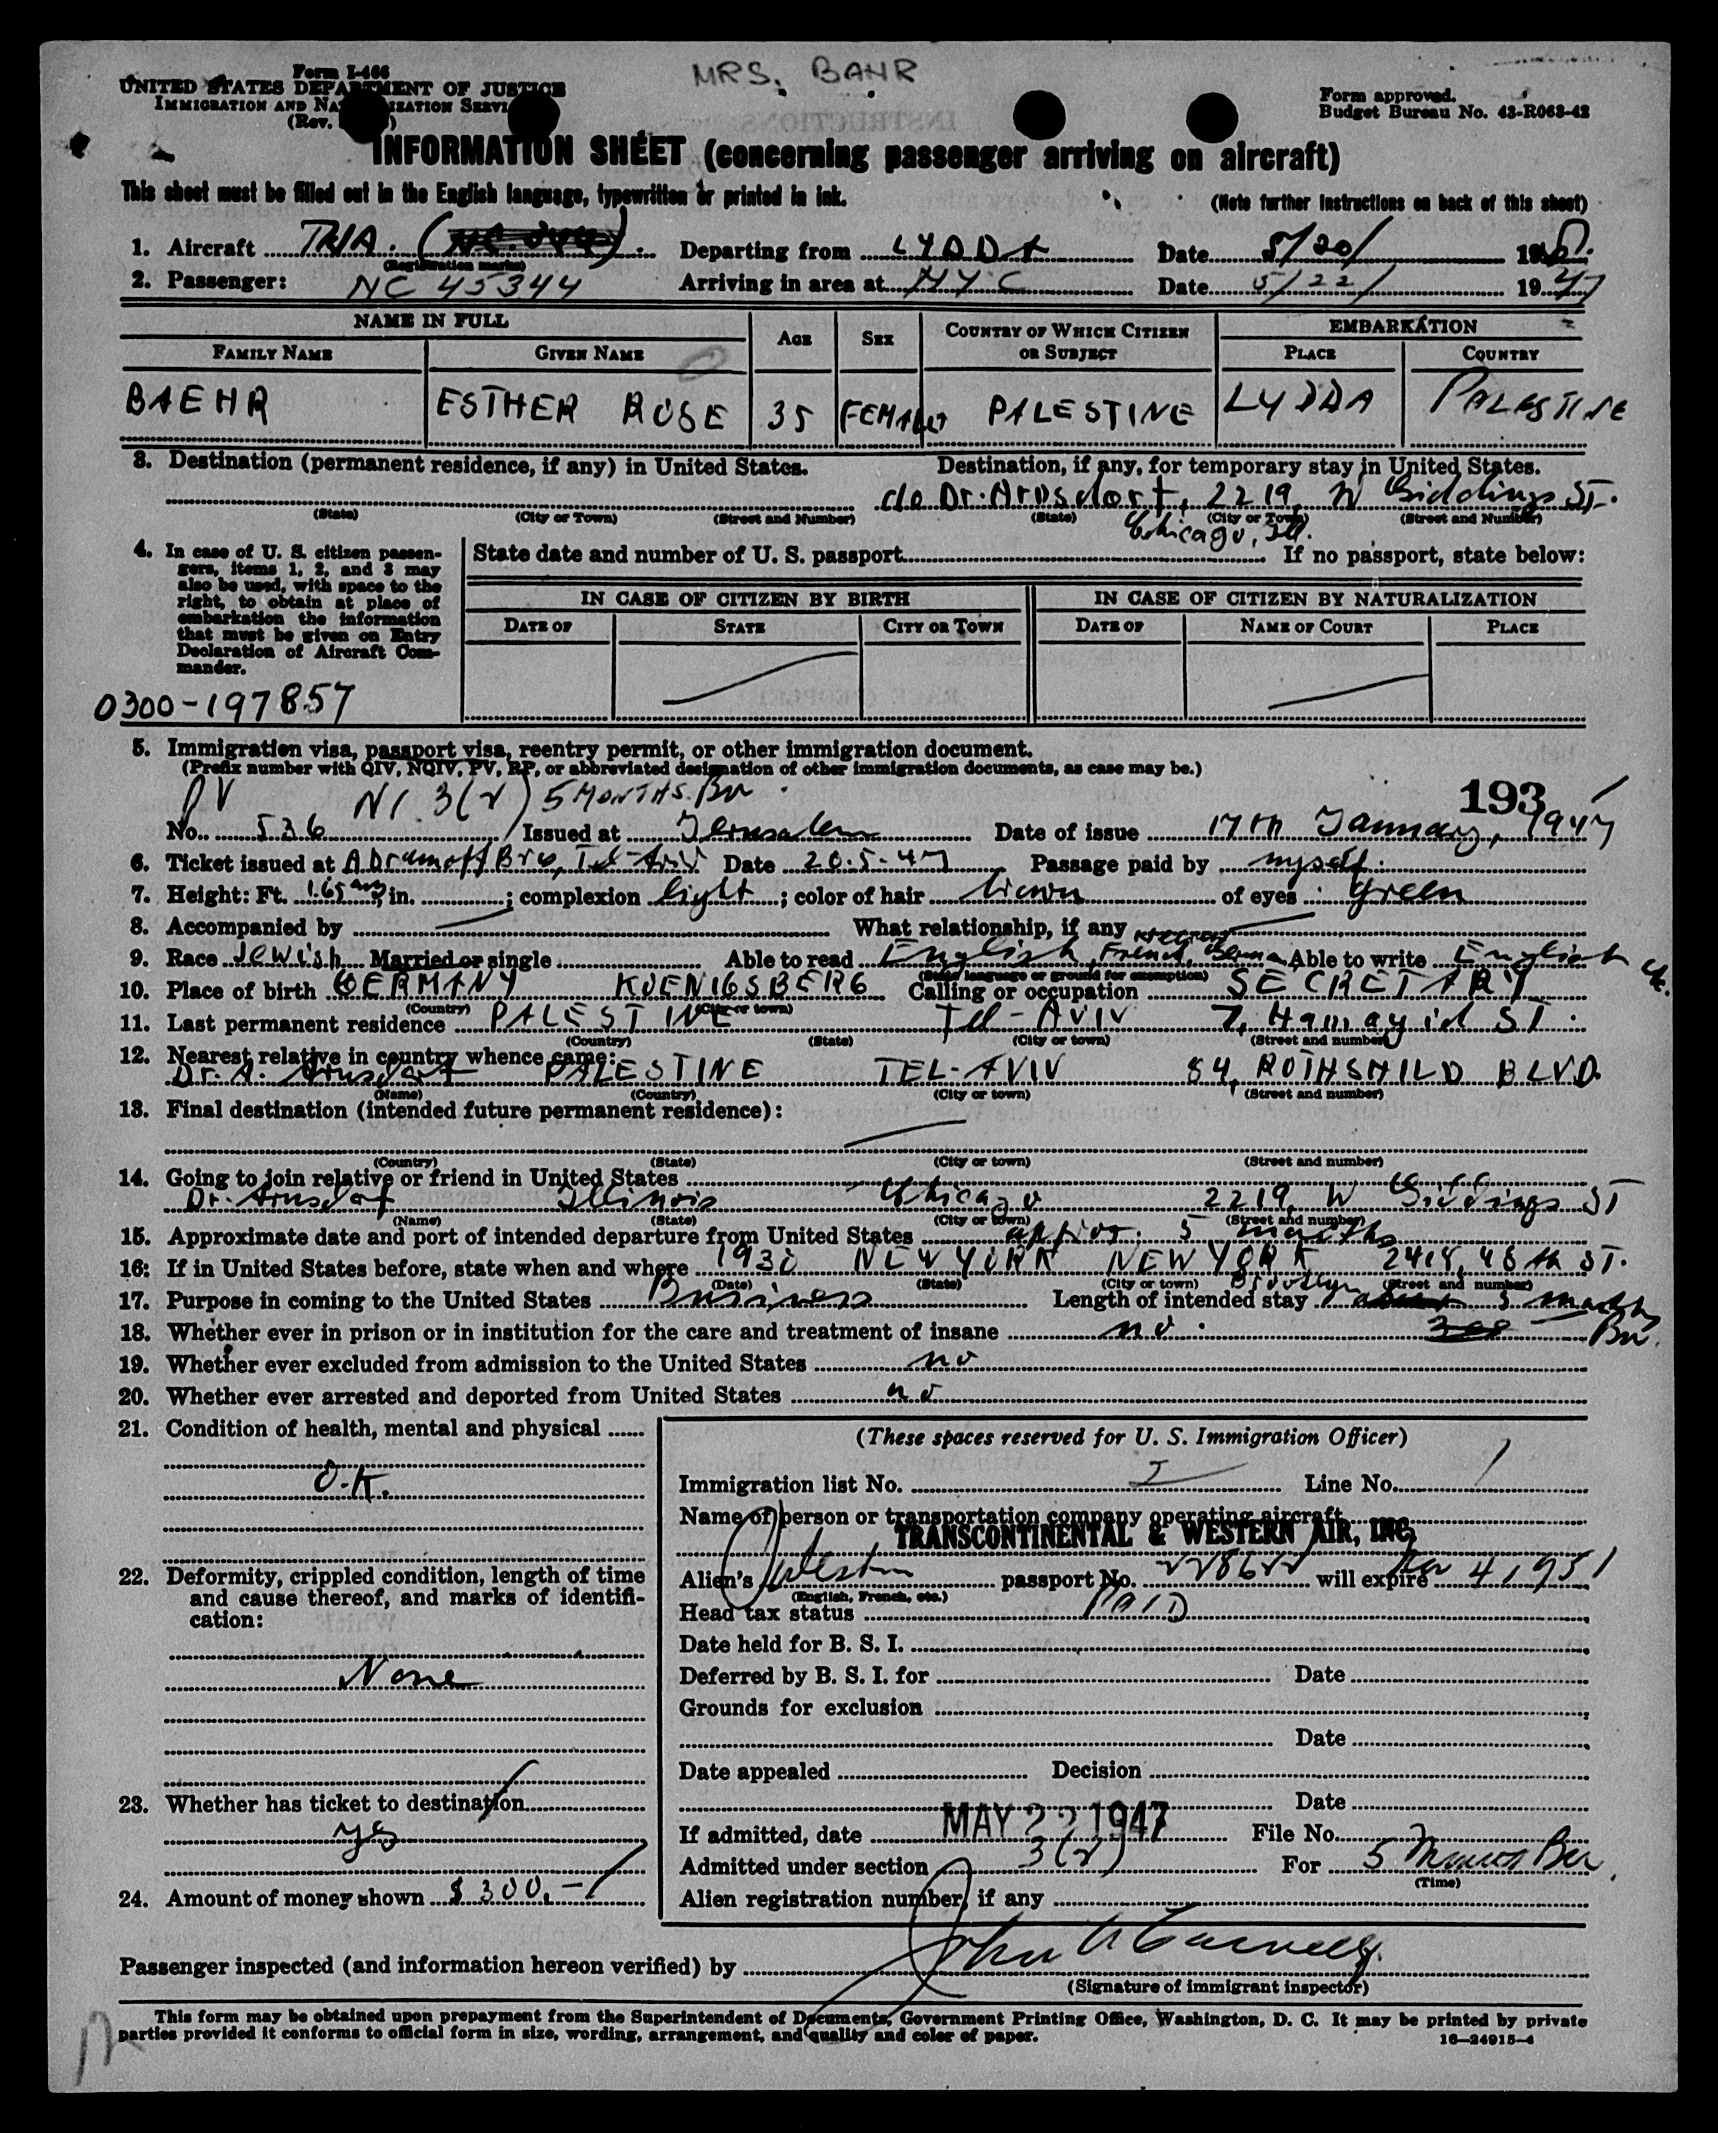 MRS. BAHR
Form I-466
UNITED STATES DEPARTMENT OF JUSTICE
IMMIGRATION AND NATURALIZATION SERVICE
(Rev. )
Form approved.
Budget Bureau No. 43-R063-42
INFORMATION SHEET (concerning passenger arriving on aircraft)
This sheet must be filled out in the English language, typewritten or printed in ink.
(Note further instructions on back of this sheet)
1. Aircraft TWA. Departing from LYDDA Date 5/20/ 19
(Registration marks)
2. Passenger: NC 45344 Arriving in area at NYC Date 5/22/ 1947
NAME IN FULL AGE SEX COUNTRY OF WHICH CITIZEN OR SUBJECT EMBARKATION
FAMILY NAME GIVEN NAME PLACE COUNTRY
BAEHR ESTHER ROSE 35 FEMALE PALESTINE LYDDA PALESTINE
3. Destination (permanent residence, if any) in United States. Destination, if any, for temporary stay in United States.
c/o Dr. Arnsdorf, 2219, W Giddings ST.
(State) (City or Town) (Street and Number) (State) (City or Town) (Street and Number)
Chicago, Ill.
4. In case of U. S. citizen passengers, items 1, 2, and 3 may
also be used, with space to the
right, to obtain at place of
embarkation the information
that must be given on Entry
Declaration of Aircraft Commander.
State date and number of U. S. passport If no passport, state below:
IN CASE OF CITIZEN BY BIRTH IN CASE OF CITIZEN BY NATURALIZATION
DATE OF STATE CITY OR TOWN DATE OF NAME OF COURT PLACE
0300-197857
5. Immigration visa, passport visa, reentry permit, or other immigration document.
(Prefix number with QIV, NQIV, PV, RP, or abbreviated designation of other immigration documents, as case may be.)
PV NI 3(2) 5 MONTHS. 193
No. 536 Issued at Jerusalem Date of issue 17th January, 1947
6. Ticket issued at Abramoff Bros, Tel-Aviv Date 20.5.47 Passage paid by myself.
7. Height: Ft. 1.65 in. ; complexion light ; color of hair brown of eyes green
8. Accompanied by What relationship, if any
9. Race Jewish Married or single Able to read English, French, German Able to write English
(State language or ground for exemption)
10. Place of birth GERMANY KOENIGSBERG Calling or occupation SECRETARY
(Country) (City or town)
11. Last permanent residence PALESTINE Tel-Aviv 7, Hamagid ST.
(Country) (State) (City or town) (Street and number)
12. Nearest relative in country whence came:
Dr. A. Arnsdorf PALESTINE TEL-AVIV 84, ROTHSHILD BLVD.
(Name) (Country) (City or town) (Street and number)
13. Final destination (intended future permanent residence):
(Country) (State) (City or town) (Street and number)
14. Going to join relative or friend in United States
Dr. Arnsdorf Illinois Chicago 2219, W Giddings ST
(Name) (State) (City or town) (Street and number)
15. Approximate date and port of intended departure from United States approx. 5 months
16: If in United States before, state when and where 1930 NEW YORK NEW YORK 2418, 48th ST.
(Date) (State) (City or town) Brooklyn (Street and number)
17. Purpose in coming to the United States Business Length of intended stay 5 months
18. Whether ever in prison or in institution for the care and treatment of insane no.
19. Whether ever excluded from admission to the United States no
20. Whether ever arrested and deported from United States no
21. Condition of health, mental and physical
O.K.
22. Deformity, crippled condition, length of time
and cause thereof, and marks of identification:
None
23. Whether has ticket to destination
yes
24. Amount of money shown $ 300.-
(These spaces reserved for U. S. Immigration Officer)
Immigration list No. I Line No. 1
Name of person or transportation company operating aircraft
TRANSCONTINENTAL & WESTERN AIR, INC.
Alien's passport No. 228622 will expire Nov 4 1951
(English, French, etc.)
Head tax status PAID
Date held for B. S. I.
Deferred by B. S. I. for Date
Grounds for exclusion
Date
Date appealed Decision
Date
If admitted, date MAY 22 1947 File No.
Admitted under section 3(2) For 5 Months
(Time)
Alien registration number, if any
Passenger inspected (and information hereon verified) by
(Signature of immigrant inspector)
This form may be obtained upon prepayment from the Superintendent of Documents, Government Printing Office, Washington, D. C. It may be printed by private
parties provided it conforms to official form in size, wording, arrangement, and quality and color of paper.
16—24915-4